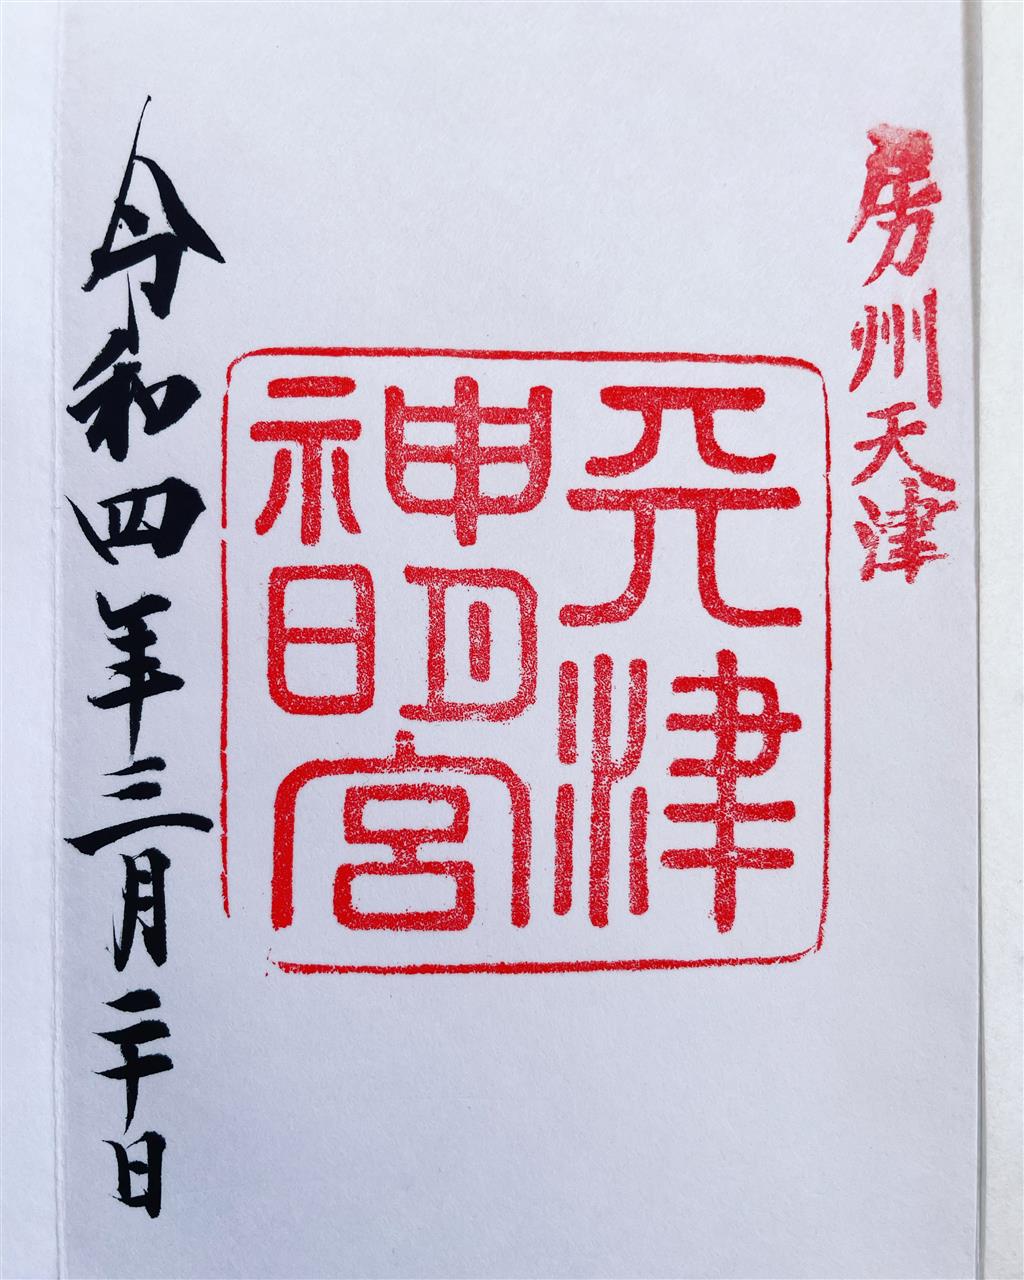 房州天津
天津
神明宮
令和四年三月二十日